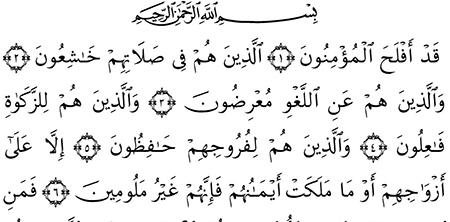 بِسْمِ ٱللَّهِ ٱلرَّحْمَٰنِ ٱلرَّحِيمِ
قَدْ أَفْلَحَ ٱلْمُؤْمِنُونَ ﴿١﴾ ٱلَّذِينَ هُمْ فِى صَلَاتِهِمْ خَٰشِعُونَ ﴿٢﴾
وَٱلَّذِينَ هُمْ عَنِ ٱللَّغْوِ مُعْرِضُونَ ﴿٣﴾ وَٱلَّذِينَ هُمْ لِلزَّكَوٰةِ
فَٰعِلُونَ ﴿٤﴾ وَٱلَّذِينَ هُمْ لِفُرُوجِهِمْ حَٰفِظُونَ ﴿٥﴾ إِلَّا عَلَىٰٓ
أَزْوَٰجِهِمْ أَوْ مَا مَلَكَتْ أَيْمَٰنُهُمْ فَإِنَّهُمْ غَيْرُ مَلُومِينَ ﴿٦﴾ فَمَنِ